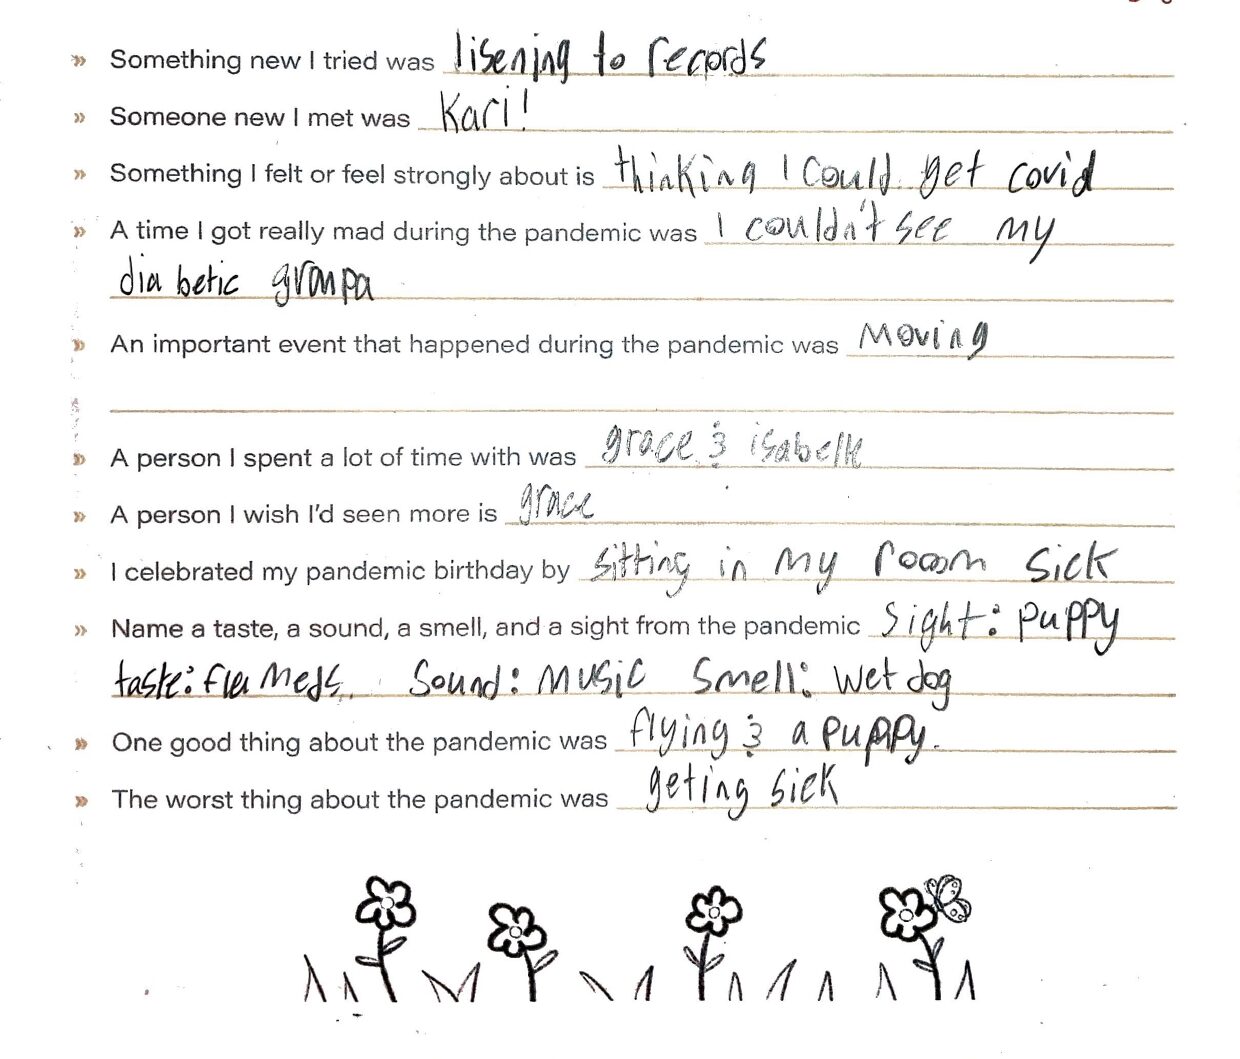 » Something new I tried was lisening to records
» Someone new I met was Kari!
» Something I felt or feel strongly about is thinking I could get covid
» A time I got really mad during the pandemic was I couldn't see my
diabetic grampa
» An important event that happened during the pandemic was Moving
» A person I spent a lot of time with was grace & isabelle
» A person I wish I'd seen more is grace
» I celebrated my pandemic birthday by sitting in my rooom sick
» Name a taste, a sound, a smell, and a sight from the pandemic Sight: puppy
taste: flu meds. Sound: Music Smell: Wet dog
» One good thing about the pandemic was flying & a puppy.
» The worst thing about the pandemic was geting sick